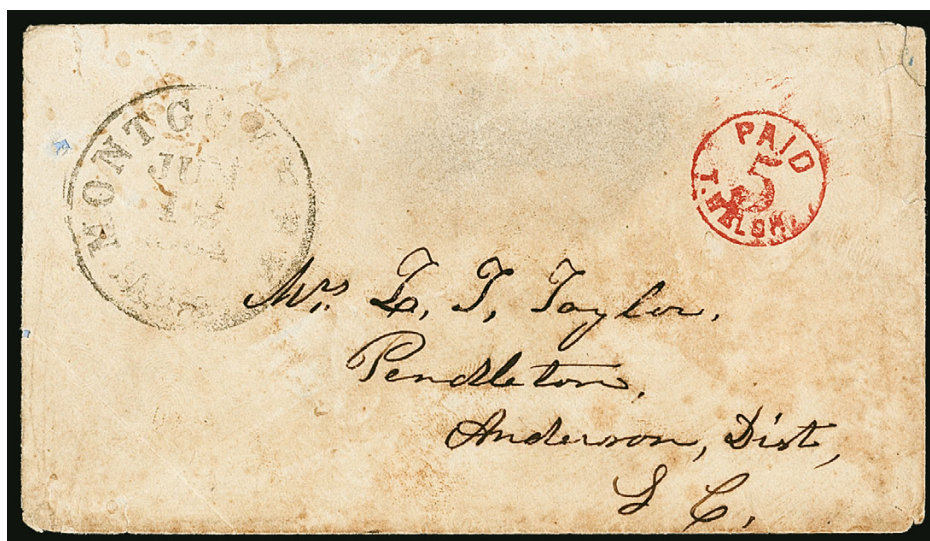 MONTGOMERY
JUN
PAID
5
T. WELSH.
Mrs. L. T. Taylor,
Pendleton,
Anderson, Dist,
S C.